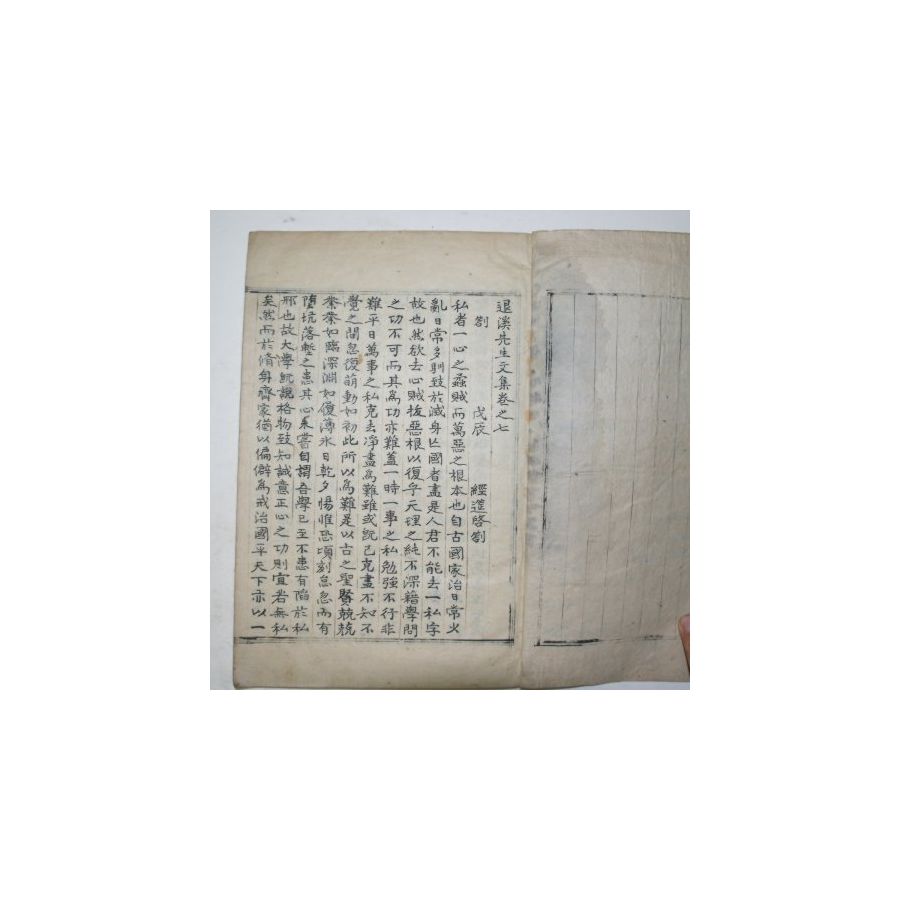 退溪先生文集卷之七
劄 戊辰 經筵啓劄
私者一心之蟊賊而萬惡之根本也自古國家治日常火
亂日常多馴致於滅身亡國者盡是人君不能去一私字
故也然欲去心賊拔惡根以復乎天理之純不深籍學問
之功不可而其爲功亦難蓋一時一事之私勉強不行非
難平日萬事之私克去淨盡爲難雖或旣已克盡不知不
覺之間忽復萌動如初此所以爲難是以古之聖賢兢兢
業業如臨深淵如履薄氷日乾夕惕惟恐頃刻怠忽而有
墮坑落塹之患其心未嘗自謂吾學已至不患有陷於私
邪也故大學旣說格物致知誠意正心之功則宜若無私
矣然而於脩身齊家猶以偏僻爲戒治國平天下亦以一